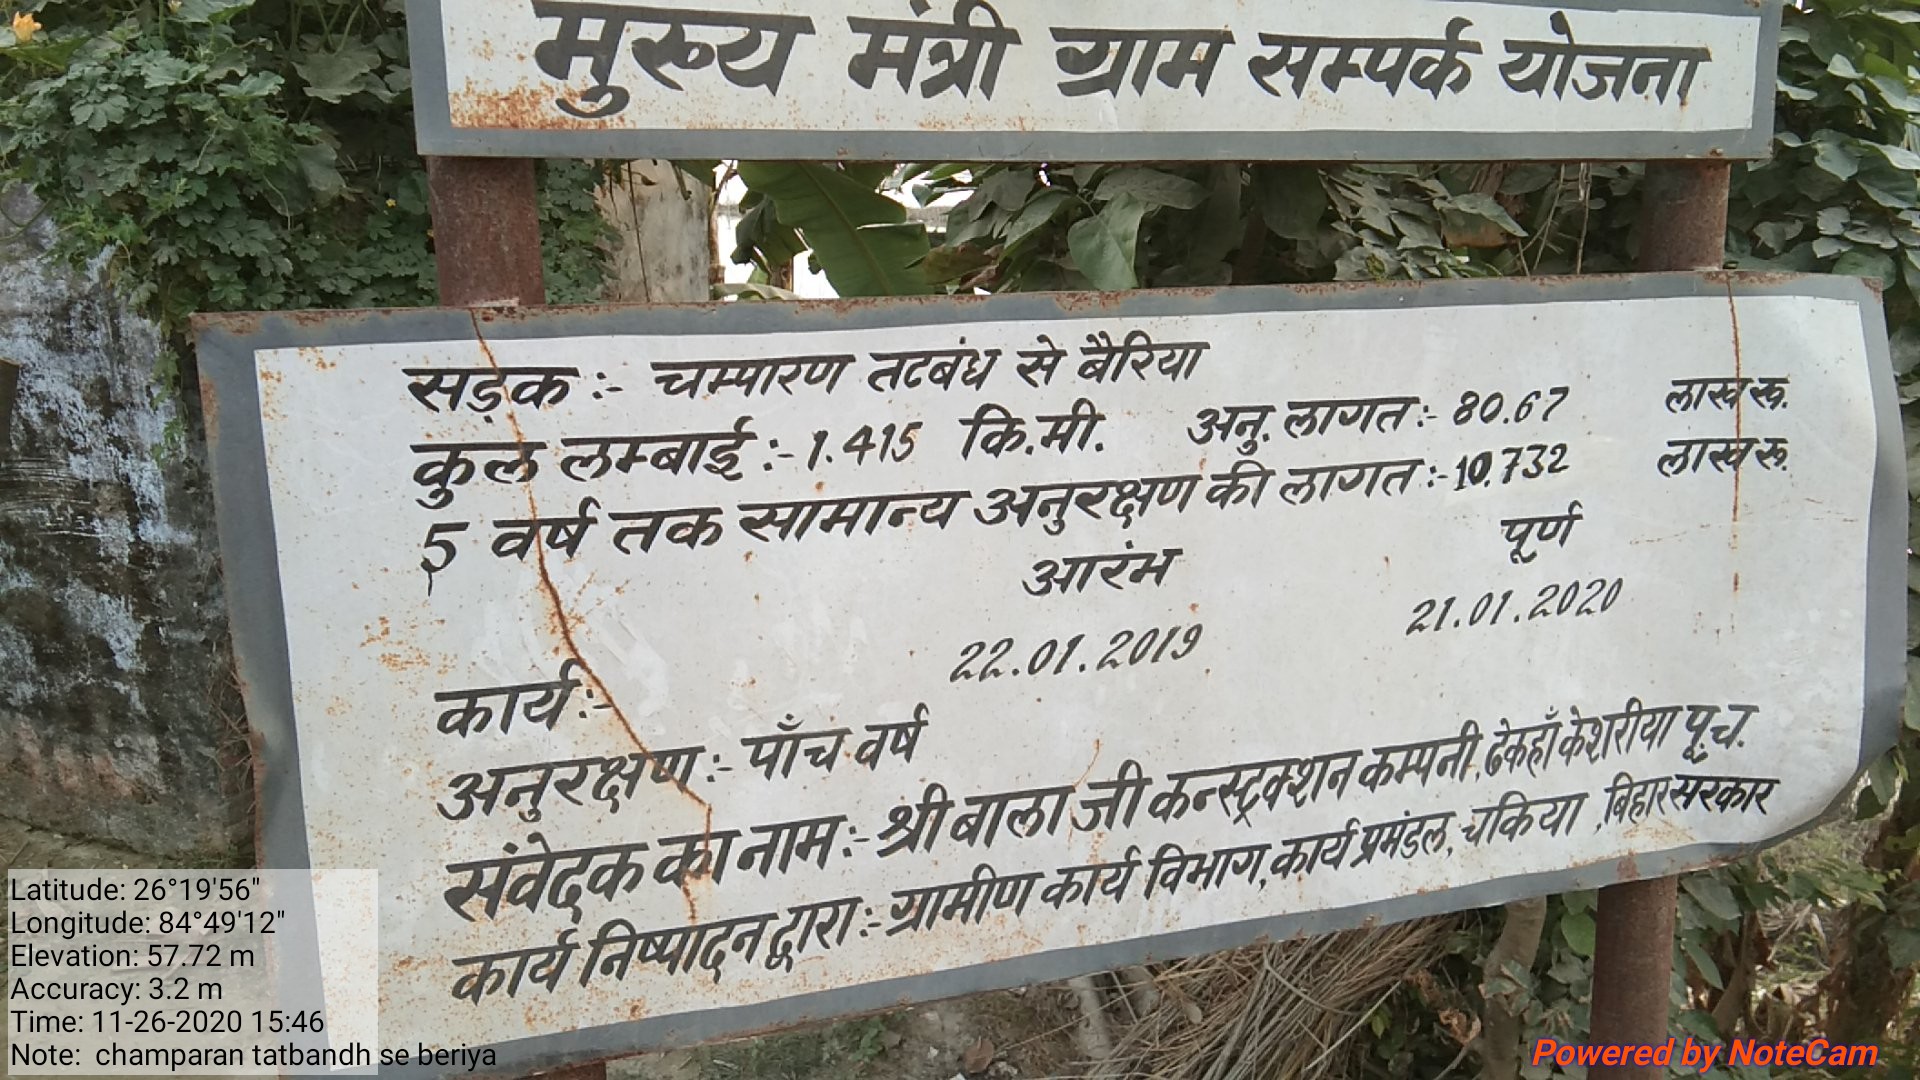 मुख्य मंत्री ग्राम सम्पर्क योजना
सड़क :- चम्पारण तटबंध से बैरिया
कुल लम्बाई :- 1.415 कि.मी. अनु. लागत :- 80.67 लाख रू.
5 वर्ष तक सामान्य अनुरक्षण की लागत :- 10.732 लाख रू.
आरंभ पूर्ण
कार्य :- 22.01.2019 21.01.2020
अनुरक्षण :- पाँच वर्ष
संवेदक का नाम :- श्री बाला जी कन्स्ट्रक्शन कम्पनी, ढेकहाँ केशरीया पू.च.
कार्य निष्पादन द्वारा :- ग्रामीण कार्य विभाग, कार्य प्रमंडल, चकिया, बिहार सरकार
Latitude: 26°19'56"
Longitude: 84°49'12"
Elevation: 57.72 m
Accuracy: 3.2 m
Time: 11-26-2020 15:46
Note: champaran tatbandh se beriya
Powered by NoteCam